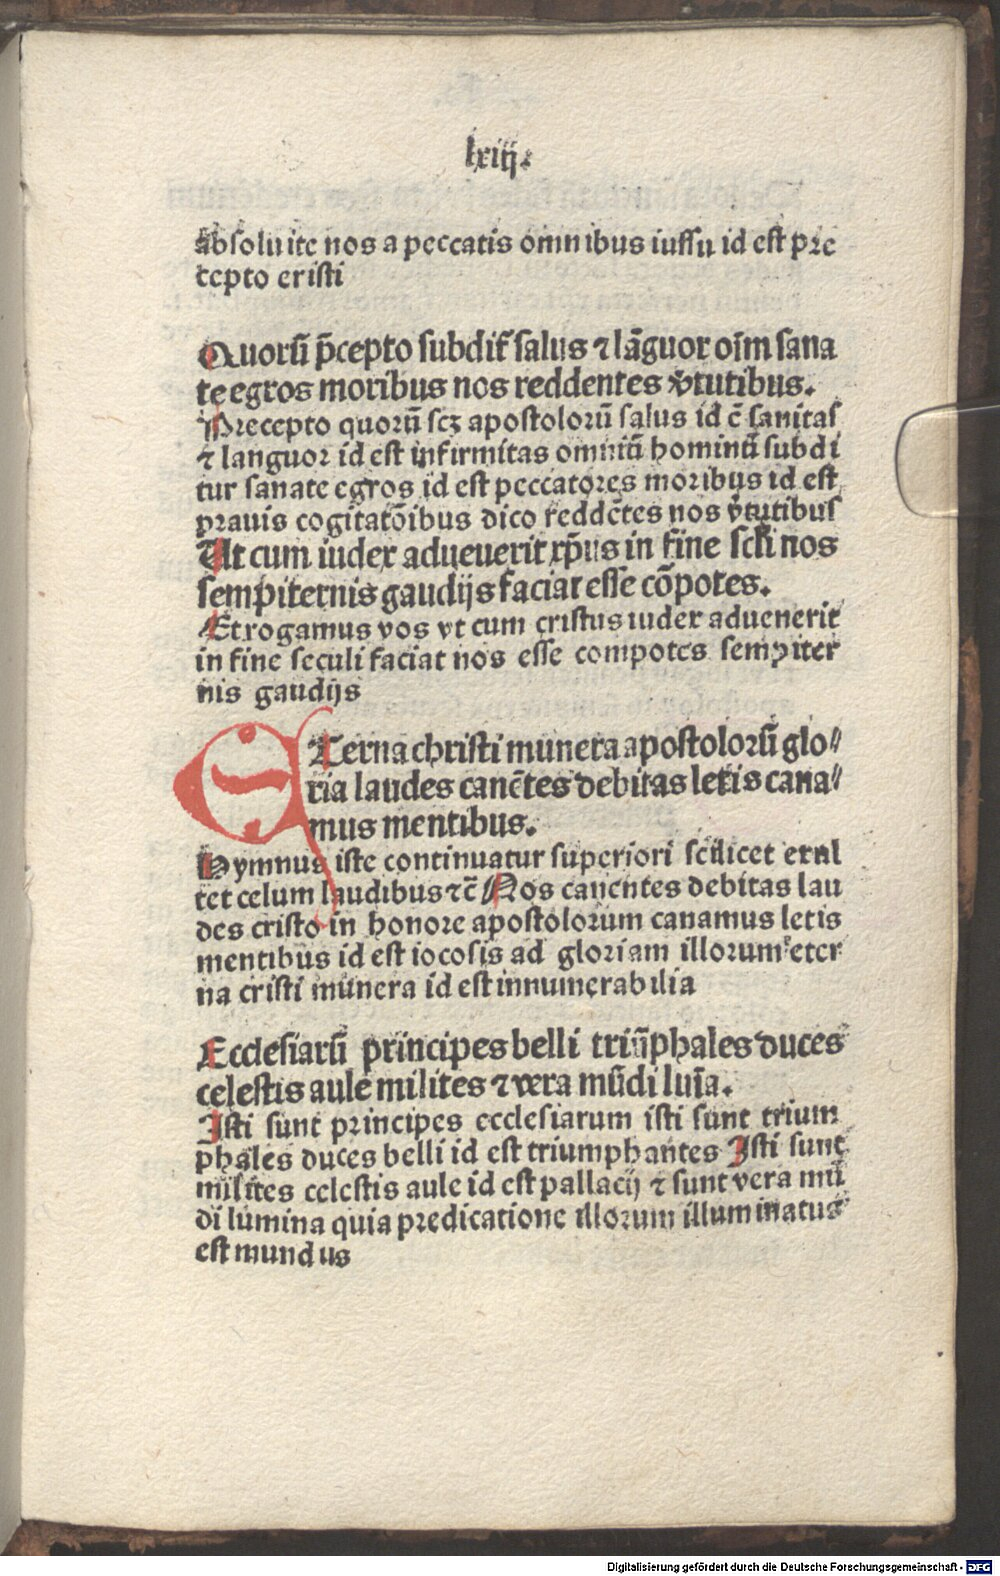 lxiij.
absoluite nos a peccatis omnibus iussu id est pre
cepto cristi
Quorū p̄cepto subdit̄ salus ⁊ lāguor oīm sana
te egros moribus nos reddentes v̄tutibus.
Precepto quorū scꝫ apostolorū salus id ē sanitas
⁊ languor id est infirmitas omniū hominū subdi
tur sanate egros id est peccatores moribus id est
prauis cogitatōibus dico reddētes nos v̄tutibus
Ut cum iudex aduenerit xp̄us in fine scl̄i nos
sempiternis gaudijs faciat esse cōpotes.
Et rogamus vos vt cum cristus iudex aduenerit
in fine seculi faciat nos esse compotes sempiter
nis gaudijs
ETerna christi munera apostolorū glo⸗
ria laudes canētes debitas letis cana⸗
mus mentibus.
Hymnus iste continuatur superiori scilicet exul
tet celum laudibus ⁊c̄ Nos canentes debitas lau
des cristo in honore apostolorum canamus letis
mentibus id est iocosis ad gloriam illorum eter
na cristi munera id est innumerabilia
Ecclesiarū principes belli triūphales duces
celestis aule milites ⁊ vera mūdi luīa.
Isti sunt principes ecclesiarum isti sunt trium
phales duces belli id est triumphantes Isti sunt
milites celestis aule id est pallacij ⁊ sunt vera mū
di lumina quia predicatione illorum illuminatus
est mundus
Digitalisierung gefördert durch die Deutsche Forschungsgemeinschaft - DFG